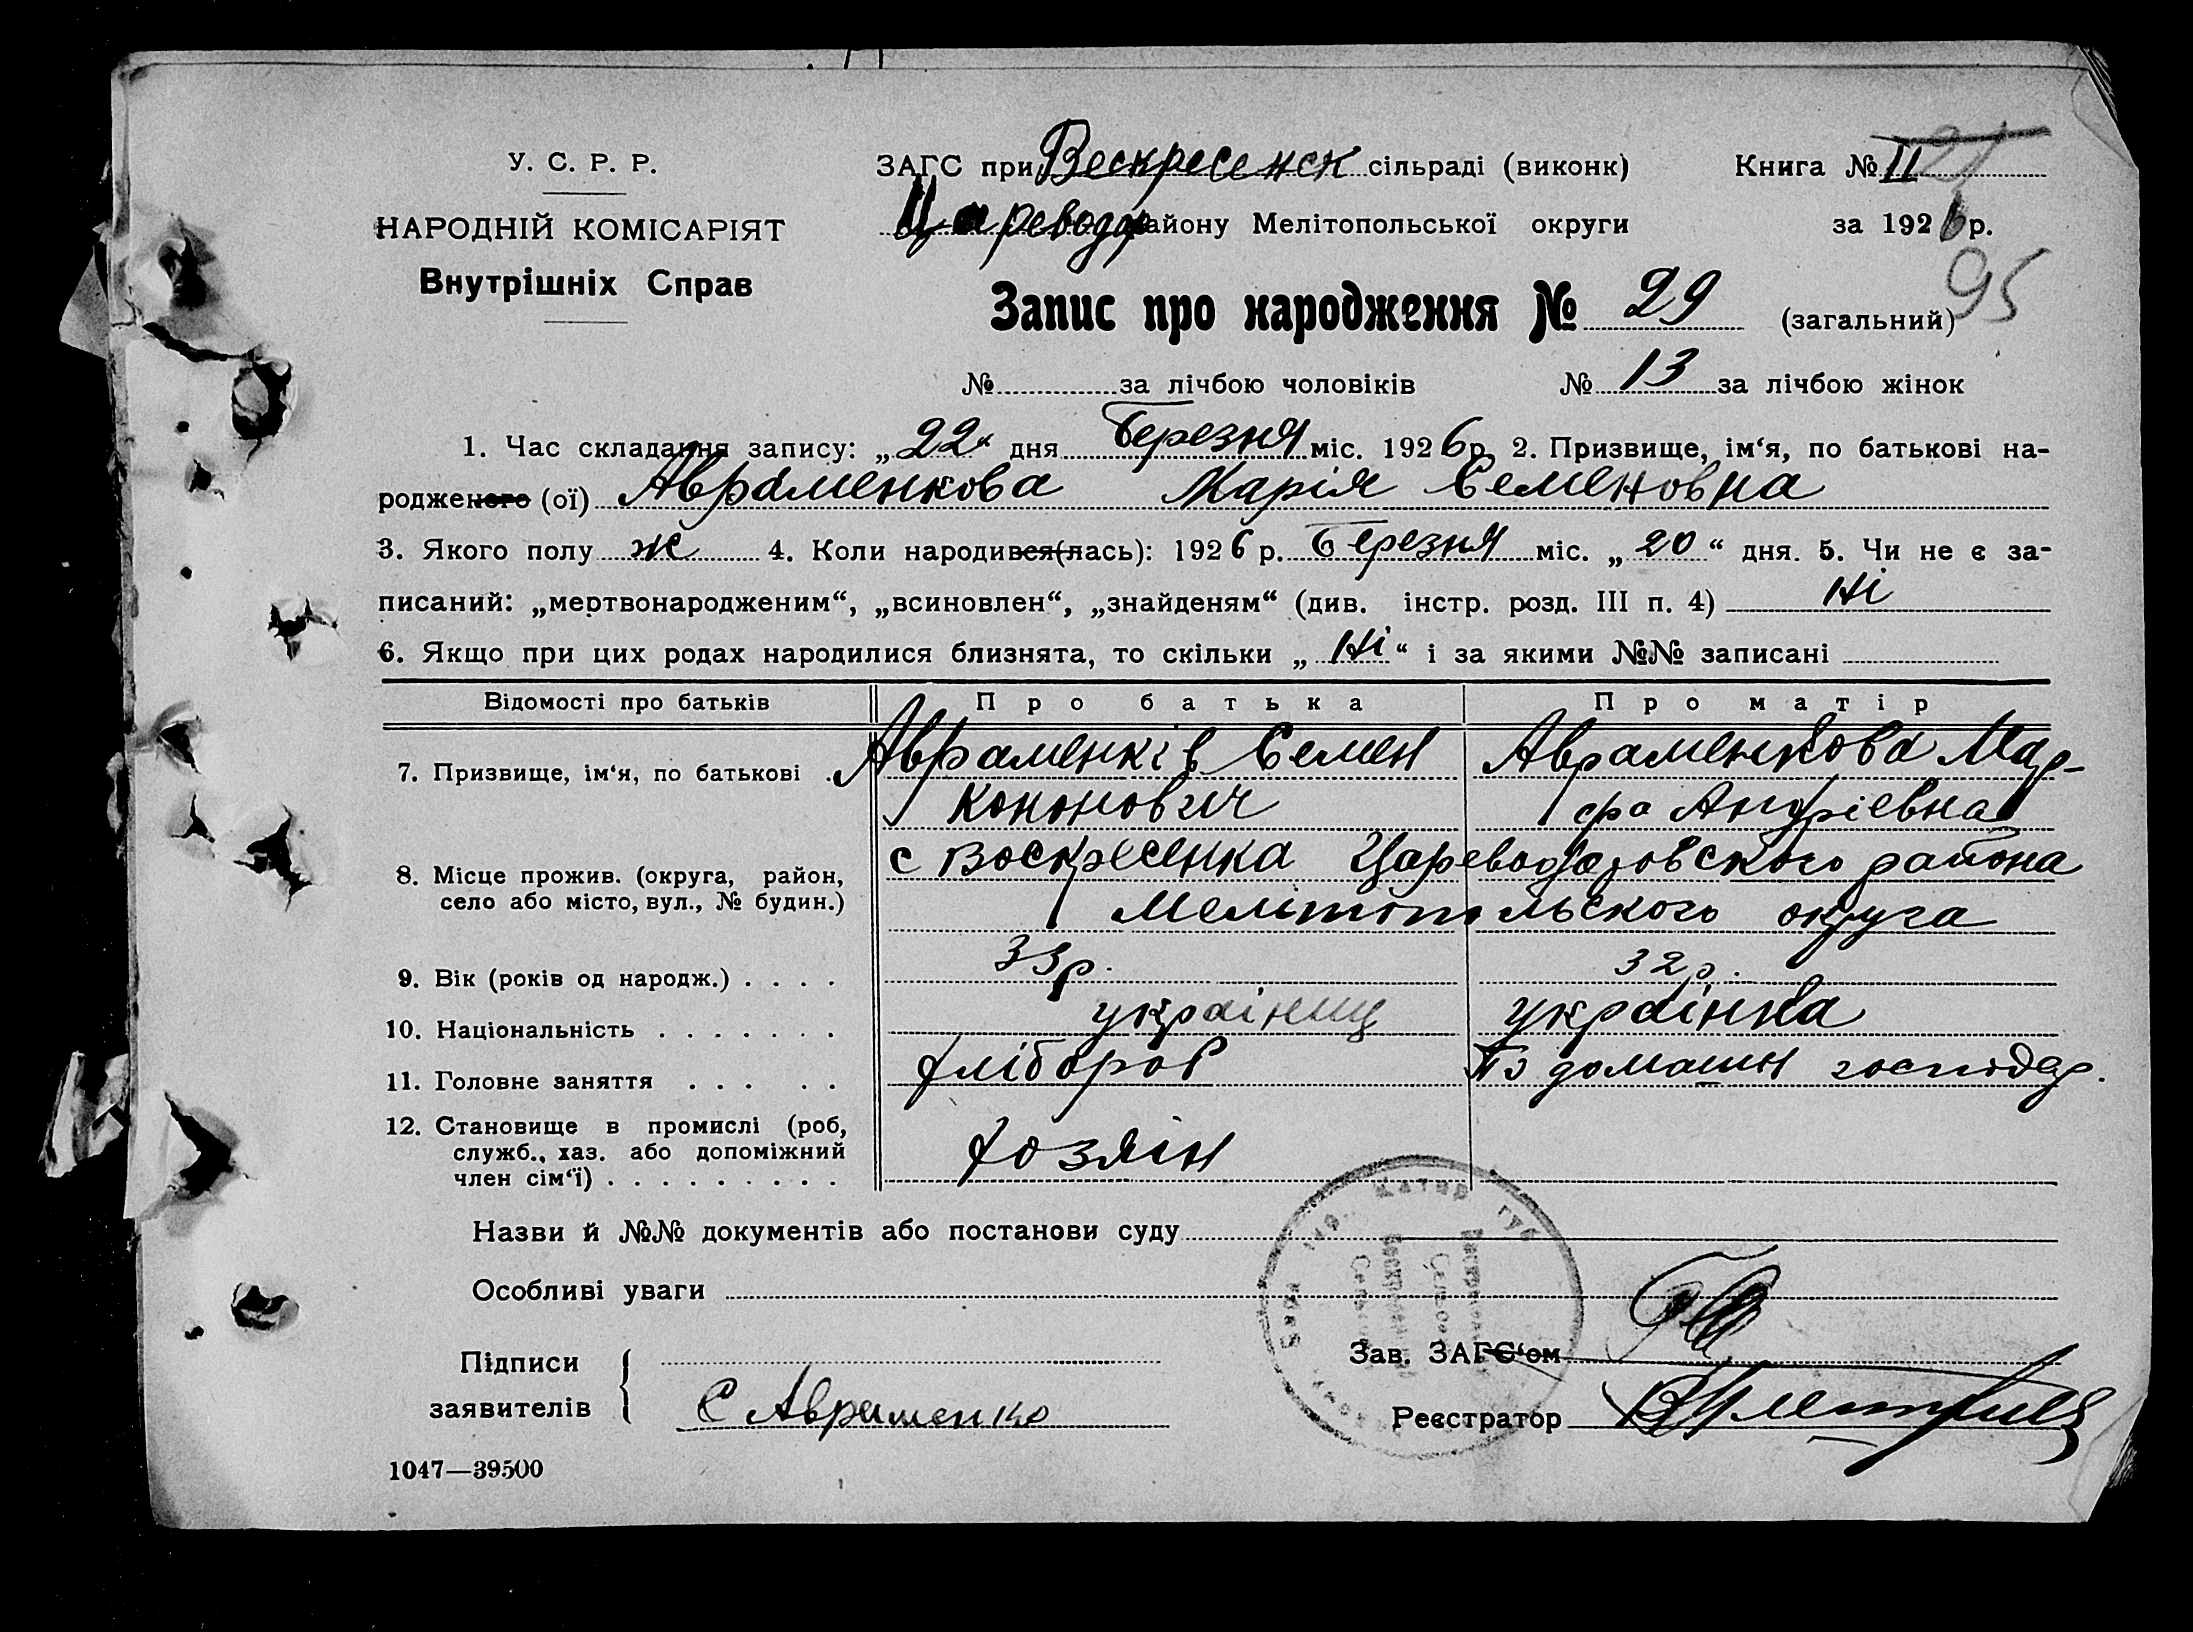 У. С. Р. Р.
НАРОДНІЙ КОМІСАРІЯТ
Внутрішніх Справ
ЗАГС при Вескресенск сільраді (виконк)
Цареводр району Мелітопольської округи
Книга № II
за 1926 р.
95
Запис про народження № 29 (загальний)
№ за лічбою чоловіків № 13 за лічбою жінок
1. Час складання запису: „22“ дня Березня міс. 1926 р. 2. Призвище, ім‘я, по батькові на-
родженого (ої) Авраменкова Марія Семеновна
3. Якого полу ж 4. Коли народився(лась): 1926 р. Березня міс. „20“ дня. 5. Чи не є за-
писаний: „мертвонародженим“, „всиновлен“, „знайденям“ (див. інстр. розд. III п. 4) Ні
6. Якщо при цих родах народилися близнята, то скільки „Ні“ і за якими №№ записані
Відомості про батьків Про батька Про матір
7. Призвище, ім‘я, по батькові . Авраменків Семен Авраменкова Мар-
Кононович фа Андріевна
8. Місце прожив. (округа, район,
село або місто, вул., № будин.)
с Воскресенка Цареводаровского района
Мелітопольского округа
9. Вік (років од народж.) . . . . 33 р. 32 р.
10. Національність . . . . . . . українець українка
11. Головне заняття . . . . . хлібороб домашн господар.
12. Становище в промислі (роб,
служб., хаз. або допоміжний
член сім‘ї) . . . . . . . . . Хозяін
Назви й №№ документів або постанови суду
Особливі уваги
Підписи
заявителів
С Авраменко
Зав. ЗАГС‘ом
Реєстратор
1047—39500